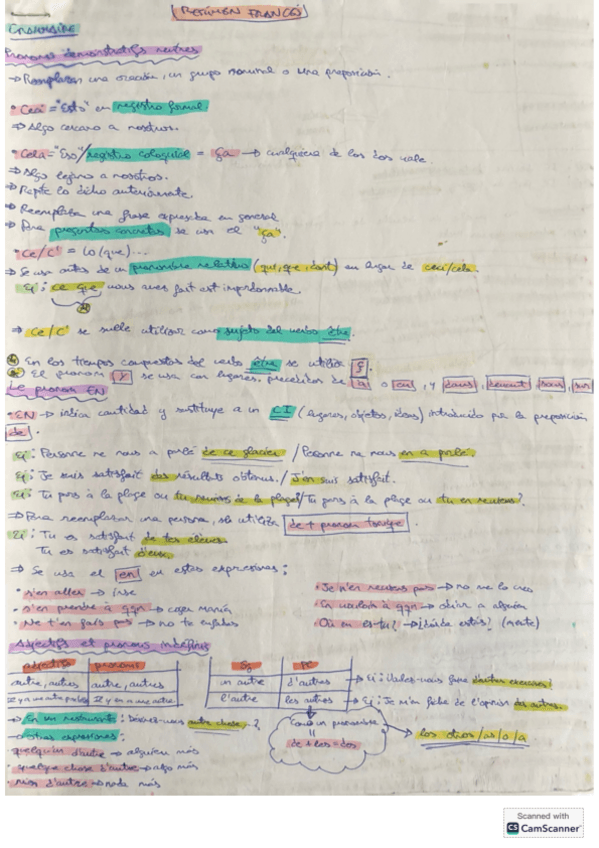 RESUMEN FRANCÉS
GRAMMAIRE
Pronoms démonstratifs neutres
→ Remplazan una oración, un grupo nominal o una preposición.
• Ceci = "Esto" en registro formal
⇒ Algo cercano a nosotros.
• Cela = "Eso"/registro coloquial = Ça → cualquiera de los dos vale
⇒ Algo lejano a nosotros.
⇒ Repite lo dicho anteriormente.
⇒ Reemplaza una frase expresada en general
⇒ Para preguntas concretas se usa el "ça".
• Ce/C' = Lo (que)...
⇒ Se usa antes de un pronombre relativo (qui, que, dont) en lugar de ceci/cela.
Ej: ce que vous avez fait est impardonable.
⇒ Ce/C' se suele utilizar como sujeto del verbo être.
En los tiempos compuestos del verbo être se utiliza Ç.
El pronom Y se usa con lugares, precedidos de à o en, y dans, devant, sous, sur
Le pronom EN
• EN → indica cantidad y sustituye a un CI (lugares, objetos, ideas) introducido por la preposición
de.
Ej: Personne ne nous a parlé de ce glacier / Personne ne nous en a parlé.
Ej: Je suis satisfait des résultats obtenus. / J'en suis satisfait.
Ej: Tu pars à la plage ou tu reviens de la plage? / Tu pars à la plage ou tu en reviens?
⇒ Para reemplazar una persona, se utiliza de + pronom tonique
Ej: Tu es satisfait de tes élèves
Tu es satisfait d'eux.
⇒ Se usa el en en estas expresiones:
• s'en aller → irse
• s'en prendre à qqn → coger manía
• Ne t'en fais pas → no te enfades
• Je n'en reviens pas → no me lo creo
• En vouloir à qqn → odiar a alguien
• Où en es-tu? → ¿dónde estás? (mente)
Adjectifs et pronoms indéfinis
adjectifs pronoms
autre, autres autre, autres
Sg Pl
un autre d'autres → Ej: Voulez-vous faire d'autres exercices?
l'autre les autres → Ej: Je m'en fiche de l'opinion des autres.
→ En un restaurante: Désirez-vous autre chose...?
→ Otras expresiones:
• quelqu'un d'autre → alguien más
• quelque chose d'autre → algo más
• rien d'autre → nada más
Como un pronombre
de + les = des
los otros/as/o/a
Scanned with
CS CamScanner